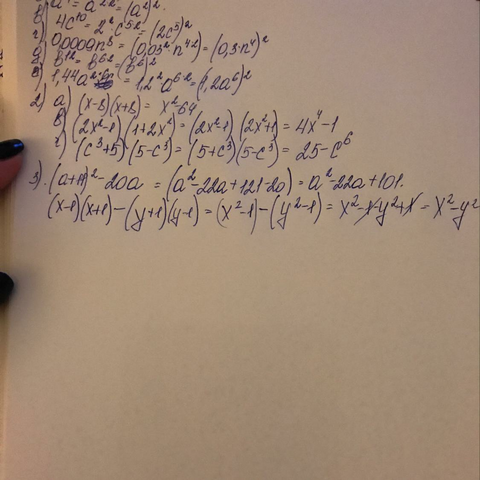 б) a⁴ = a²·² = (a²)²
г) 4c¹⁰ = 2²c⁵·² = (2c⁵)²
g) 0,0009n⁸ = (0,03² n⁴·²) = (0,3·n⁴)²
b¹² = b⁶·² = (b⁶)²
1,44a = 1,2² a⁶·² = (1,2a⁶)²
2) a) (x-8)(x+8) = x²-64
б) (2x²-1)(1+2x²) = (2x²-1)(2x²+1) = 4x⁴-1
г) (c³+5)(5-c³) = (5+c³)(5-c³) = 25-c⁶
3). (a+11)²-20a = (a²-22a+121-20) = a²-22a+101.
(x-1)(x+1)-(y+1)(y-1) = (x²-1)-(y²-1) = x²-1-y²+1 = x²-y²